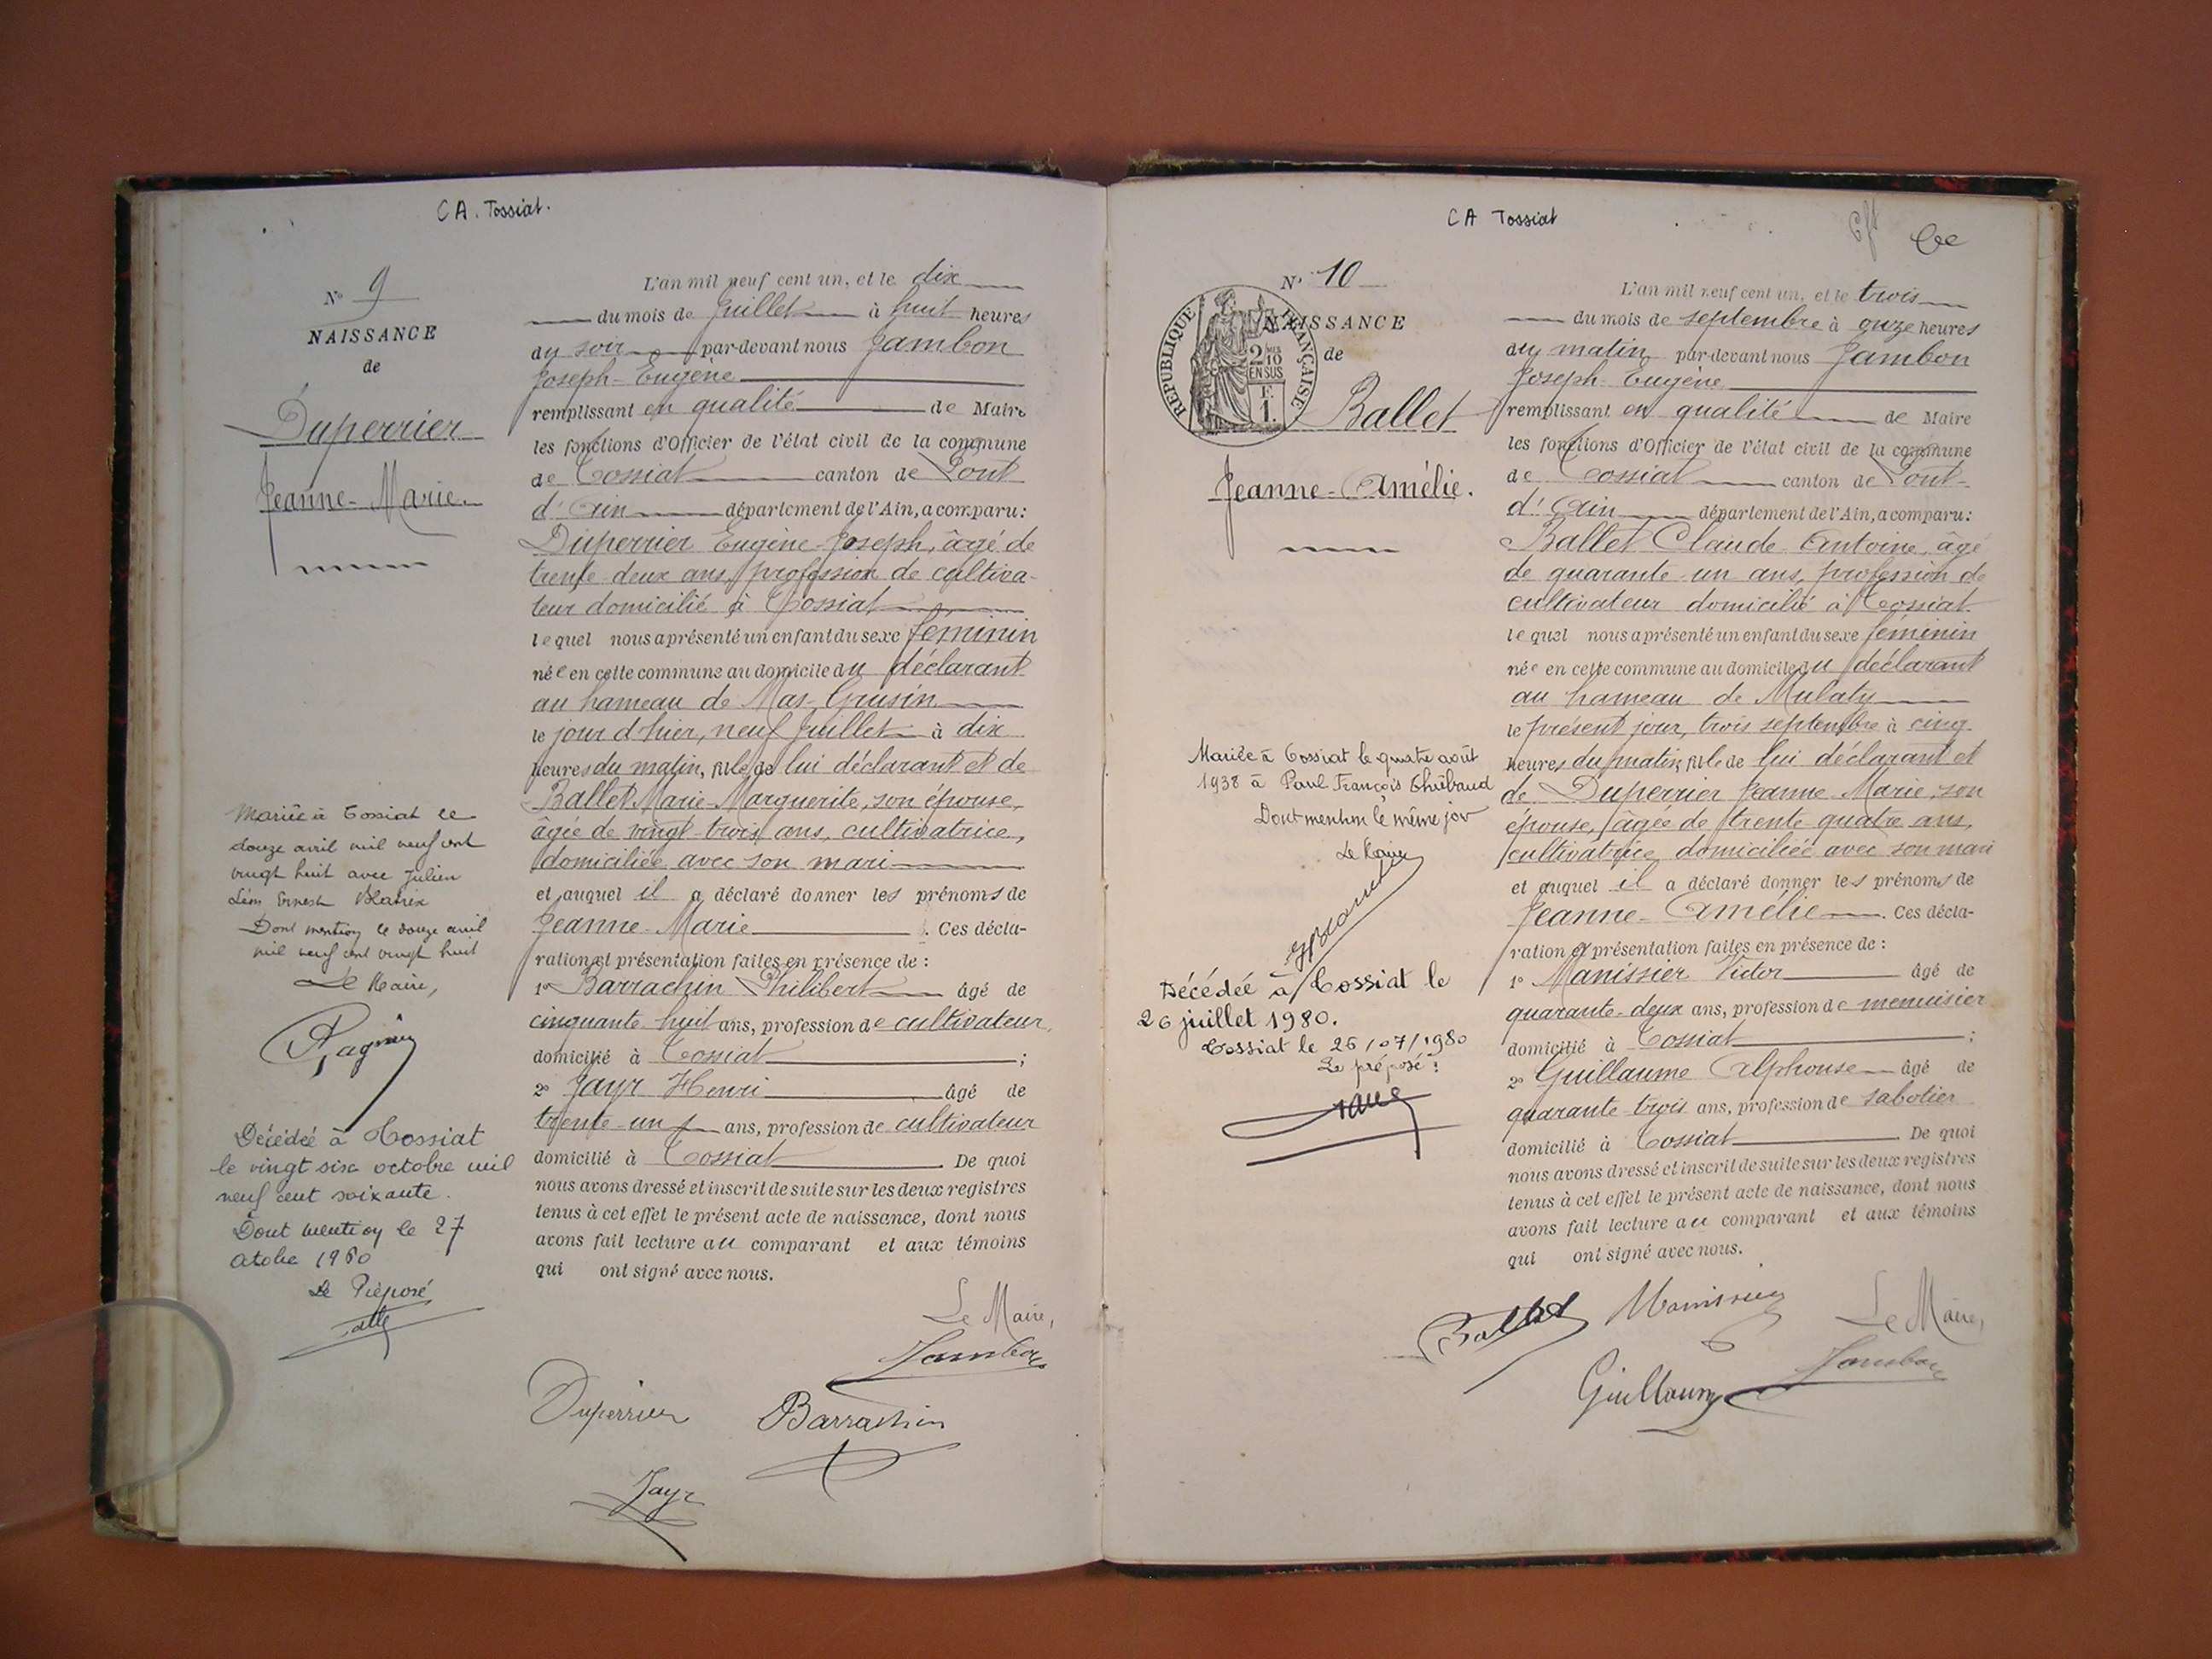 CA. Tossiat.
N° 9
NAISSANCE
de
Duperrier
Jeanne-Marie
L'an mil neuf cent un, et le dix
du mois de Juillet à huit heures
du soir par-devant nous Jambon
Joseph-Eugène
remplissant en qualité de Maire
les fonctions d'Officier de l'état civil de la commune
de Tossiat canton de Pont
d'Ain département de l'Ain, a comparu:
Duperrier Eugène-Joseph, âgé de
trente-deux ans, profession de cultiva-
teur domicilié à Tossiat
lequel nous a présenté un enfant du sexe féminin
née en cette commune au domicile du déclarant
au hameau de Mas-Grusin
le jour d'hier, neuf Juillet à dix
heures du matin, fille de lui déclarant et de
Ballet Marie-Marguerite, son épouse,
âgée de vingt-trois ans, cultivatrice,
domiciliée avec son mari
et auquel il a déclaré donner les prénoms de
Jeanne-Marie. Ces décla-
ration et présentation faites en présence de :
1° Barrachin Philibert âgé de
cinquante-huit ans, profession de cultivateur,
domicilié à Tossiat ;
2° Jayr Henri âgé de
trente-un ans, profession de cultivateur
domicilié à Tossiat. De quoi
nous avons dressé et inscrit de suite sur les deux registres
tenus à cet effet le présent acte de naissance, dont nous
avons fait lecture au comparant et aux témoins
qui ont signé avec nous.
Le Maire,
Jambon
Duperrier Barrachin
Jayr
Mariée à Tossiat le
douze avril mil neuf cent
vingt huit avec Julien
Léon Ernest
Dont mention le douze avril
mil neuf cent vingt huit
Le Maire,
Décédée à Tossiat
le vingt six octobre mil
neuf cent soixante.
Dont mention le 27
octobre 1960
Le Préposé
CA Tossiat
N° 10
RÉPUBLIQUE FRANÇAISE
2/10 EN SUS
1 F.
NAISSANCE
de
Ballet
Jeanne-Amélie.
L'an mil neuf cent un, et le trois
du mois de septembre à onze heures
du matin par-devant nous Jambon
Joseph-Eugène
remplissant en qualité de Maire
les fonctions d'Officier de l'état civil de la commune
de Tossiat canton de Pont-
d'Ain département de l'Ain, a comparu:
Ballet Claude-Antoine, âgé
de quarante-un ans, profession de
cultivateur domicilié à Tossiat
lequel nous a présenté un enfant du sexe féminin
née en cette commune au domicile du déclarant
au hameau de Mulaty
le présent jour, trois septembre à cinq
heures du matin, fille de lui déclarant et
de Duperrier Jeanne-Marie, son
épouse, âgée de trente-quatre ans,
cultivatrice, domiciliée avec son mari
et auquel il a déclaré donner les prénoms de
Jeanne-Amélie. Ces décla-
ration et présentation faites en présence de :
1° Manissier Victor âgé de
quarante-deux ans, profession de menuisier
domicilié à Tossiat ;
2° Guillaume Alphonse âgé de
quarante-trois ans, profession de sabotier
domicilié à Tossiat. De quoi
nous avons dressé et inscrit de suite sur les deux registres
tenus à cet effet le présent acte de naissance, dont nous
avons fait lecture au comparant et aux témoins
qui ont signé avec nous.
Ballet Manissier Le Maire,
Guillaume Jambon
Mariée à Tossiat le quatre août
1938 à Paul François Thiébaud
Dont mention le même jour
Le Maire
Décédée à Tossiat le
26 juillet 1980.
Tossiat le 26/07/1980
Le préposé :